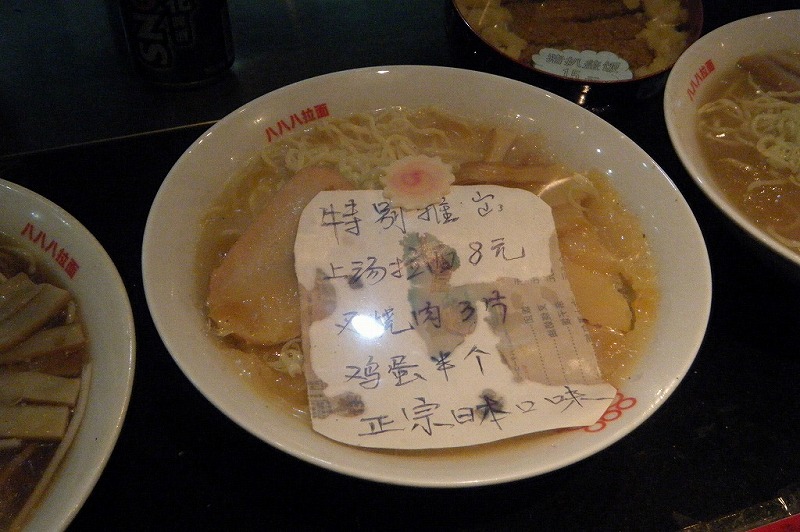 八八八拉面
特别推出
上汤拉面8元
叉烧肉3片
鸡蛋半个
正宗日本口味
八八八拉面
八八八拉面